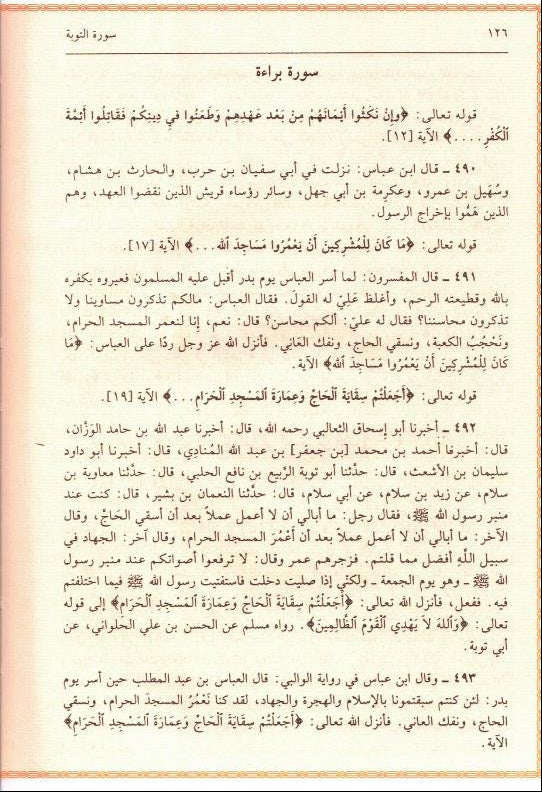 ١٢٦ سورة التوبة
سورة براءة
قوله تعالى: ﴿وإنْ نَكَثُوا أَيْمَانَهُمْ مِنْ بَعْد عَهْدِهِمْ وَطَعَنُوا في دِينِكُمْ فَقَاتِلُوا أَئِمَّةَ
ٱلْكُفْرِ. . . .﴾ الآية [١٢].
٤٩٠ ـ قال ابن عباس: نزلت في أبي سفيان بن حرب، والحارث بن هشام،
وسُهَيل بن عمرو، وعكرمة بن أبي جهل، وسائر رؤساء قريش الذين نقضوا العهد، وهم
الذين هَمُّوا بإخراج الرسول.
قوله تعالى: ﴿مَا كَانَ لِلْمُشْرِكِينَ أَنْ يَعْمُرُوا مَسَاجِدَ ٱلله. . .﴾ الآية [١٧].
٤٩١ ـ قال المفسرون: لما أسر العباس يوم بدر أقبل عليه المسلمون فعيروه بكفره
بالله وقطيعته الرحم، وأغلظ عَلِيّ له القولَ. فقال العباس: مالكم تذكرون مساوينا ولا
تذكرون محاسننا؟ فقال له عليّ: ألكم محاسن؟ قال: نعم، إنا لنعمر المسجد الحرام،
ونَحْجُبُ الكعبة، ونسقي الحاج، ونفك العَانِي. فأنزل الله عز وجل ردًا على العباس: ﴿مَا
كَانَ لِلْمُشْرِكِينَ أَنْ يَعْمُرُوا مَسَاجِدَ ٱلله﴾ الآية.
قوله تعالى: ﴿أَجَعَلْتُمْ سِقَايَةَ ٱلْحَاجِّ وَعِمَارَةَ ٱلْمَسْجِدِ ٱلْحَرَامِ. . .﴾ الآية [١٩].
٤٩٢ ـ أخبرنا أبو إسحاق الثعالبي رحمه الله، قال: أخبرنا عبد الله بن حامد الوَزَّان،
قال: أخبرنا أحمد بن محمد [بن جعفر] بن عبد الله المُنادِي، قال: أخبرنا أبو داود
سليمان بن الأشعث، قال: حدَّثنا أبو توبة الرَّبيع بن نافع الحلبي، قال: حدَّثنا معاوية بن
سلام، عن زيد بن سلام، عن أبي سلام، قال: حدَّثنا النعمان بن بشير، قال: كنت عند
منبر رسول الله ﷺ، فقال رجل: ما أبالي أن لا أعمل عملاً بعد أن أسقي الحَاجّ، وقال
الآخر: ما أبالي أن لا أعمل عملاً بعد أن أَعْمُرَ المسجد الحرام، وقال آخر: الجهاد في
سبيل اللَّهِ أفضل مما قلتم. فزجرهم عمر وقال: لا ترفعوا أصواتكم عند منبر رسول
الله ﷺ ـ وهو يوم الجمعة ـ ولكنِّي إذا صليت دخلت فاستفتيت رسول الله ﷺ فيما اختلفتم
فيه. ففعل، فأنزل الله تعالى: ﴿أَجَعَلْتُمْ سِقَايَةَ ٱلْحَاجِّ وَعِمَارَةَ ٱلْمَسْجِدِ ٱلْحَرَامِ﴾ إلى قوله
تعالى: ﴿وَٱللهُ لاَ يَهْدِي ٱلْقَوْمَ ٱلظَّالِمِينَ﴾. رواه مسلم عن الحسن بن علي الحلواني، عن
أبي توبة.
٤٩٣ ـ وقال ابن عباس في رواية الوالبي: قال العباس بن عبد المطلب حين أسر يوم
بدر: لئن كنتم سبقتمونا بالإسلام والهجرة والجهاد، لقد كنا نَعْمُرُ المسجدَ الحرام، ونسقي
الحاج، ونفك العاني. فأنزل الله تعالى: ﴿أَجَعَلْتُمْ سِقَايَةَ ٱلْحَاجِّ وَعِمَارَةَ ٱلْمَسْجِدِ ٱلْحَرَامِ﴾
الآية.